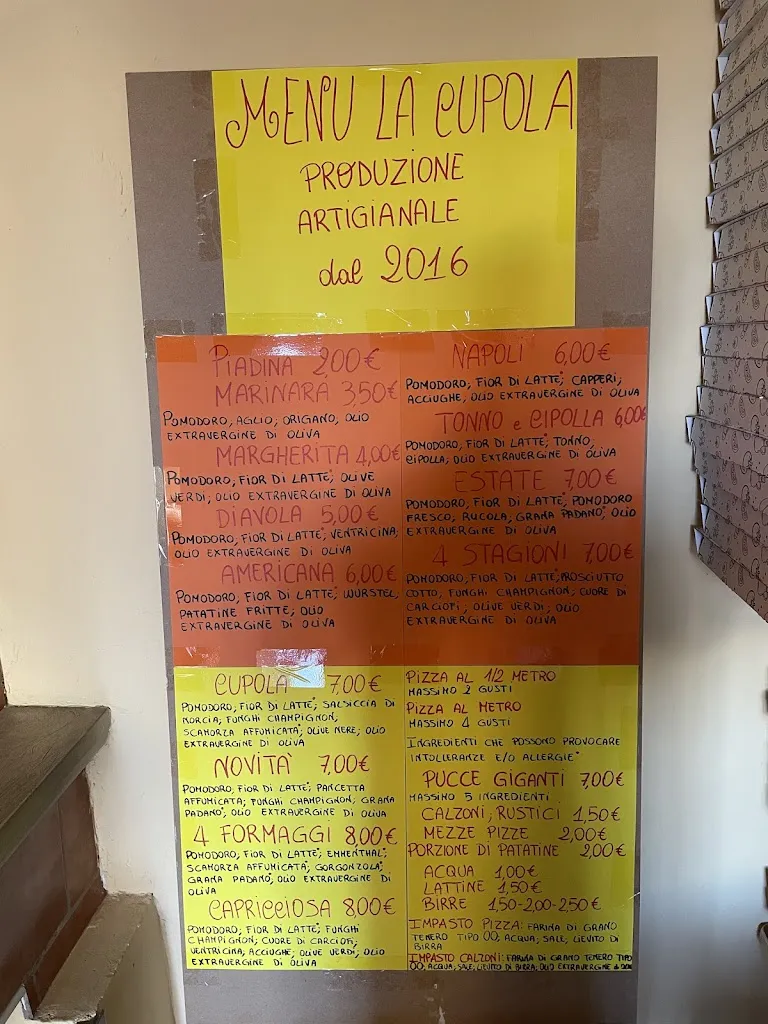 MENU LA CUPOLA
PRODUZIONE
ARTIGIANALE
dal 2016
PIADINA 2,00€
MARINARA 3,50€
POMODORO, AGLIO, ORIGANO, OLIO
EXTRAVERGINE DI OLIVA
MARGHERITA 4,00€
POMODORO, FIOR DI LATTE*, OLIVE
VERDI, OLIO EXTRAVERGINE DI OLIVA
DIAVOLA 5,00€
POMODORO, FIOR DI LATTE*, VENTRICINA,
OLIO EXTRAVERGINE DI OLIVA
AMERICANA 6,00€
POMODORO, FIOR DI LATTE*, WURSTEL,
PATATINE FRITTE, OLIO
EXTRAVERGINE DI OLIVA
NAPOLI 6,00€
POMODORO, FIOR DI LATTE*, CAPPERI,
ACCIUGHE, OLIO EXTRAVERGINE DI OLIVA
TONNO e CIPOLLA 6,00€
POMODORO, FIOR DI LATTE*, TONNO,
CIPOLLA, OLIO EXTRAVERGINE DI OLIVA
ESTATE 7,00€
POMODORO, FIOR DI LATTE*, POMODORO
FRESCO, RUCOLA, GRANA PADANO*, OLIO
EXTRAVERGINE DI OLIVA
4 STAGIONI 7,00€
POMODORO, FIOR DI LATTE*, PROSCIUTTO
COTTO, FUNGHI CHAMPIGNON, CUORE DI
CARCIOFI, OLIVE VERDI, OLIO
EXTRAVERGINE DI OLIVA
CUPOLA 7,00€
POMODORO, FIOR DI LATTE*, SALSICCIA DI
NORCIA, FUNGHI CHAMPIGNON,
SCAMORZA AFFUMICATA*, OLIVE NERE, OLIO
EXTRAVERGINE DI OLIVA
NOVITÀ 7,00€
POMODORO, FIOR DI LATTE*, PANCETTA
AFFUMICATA, FUNGHI CHAMPIGNON, GRANA
PADANO*, OLIO EXTRAVERGINE DI OLIVA
4 FORMAGGI 8,00€
POMODORO, FIOR DI LATTE*, EMMENTHAL*,
SCAMORZA AFFUMICATA*, GORGONZOLA*,
GRANA PADANO*, OLIO EXTRAVERGINE DI
OLIVA
CAPRICCIOSA 8,00€
POMODORO, FIOR DI LATTE*, FUNGHI
CHAMPIGNON, CUORE DI CARCIOFI,
VENTRICINA, ACCIUGHE, OLIVE VERDI, OLIO
EXTRAVERGINE DI OLIVA
PIZZA AL 1/2 METRO
MASSIMO 2 GUSTI
PIZZA AL METRO
MASSIMO 4 GUSTI
INGREDIENTI CHE POSSONO PROVOCARE
INTOLLERANZE E/O ALLERGIE*
PUCCE GIGANTI 7,00€
MASSIMO 5 INGREDIENTI
CALZONI, RUSTICI 1,50€
MEZZE PIZZE 2,00€
PORZIONE DI PATATINE 2,00€
ACQUA 1,00€
LATTINE 1,50€
BIRRE 1,50-2,00-2,50€
IMPASTO PIZZA: FARINA DI GRANO
TENERO TIPO 00, ACQUA, SALE, LIEVITO DI
BIRRA
IMPASTO CALZONI: FARINA DI GRANO TENERO TIPO
00, ACQUA, SALE, LIEVITO DI BIRRA, OLIO EXTRAVERGINE di